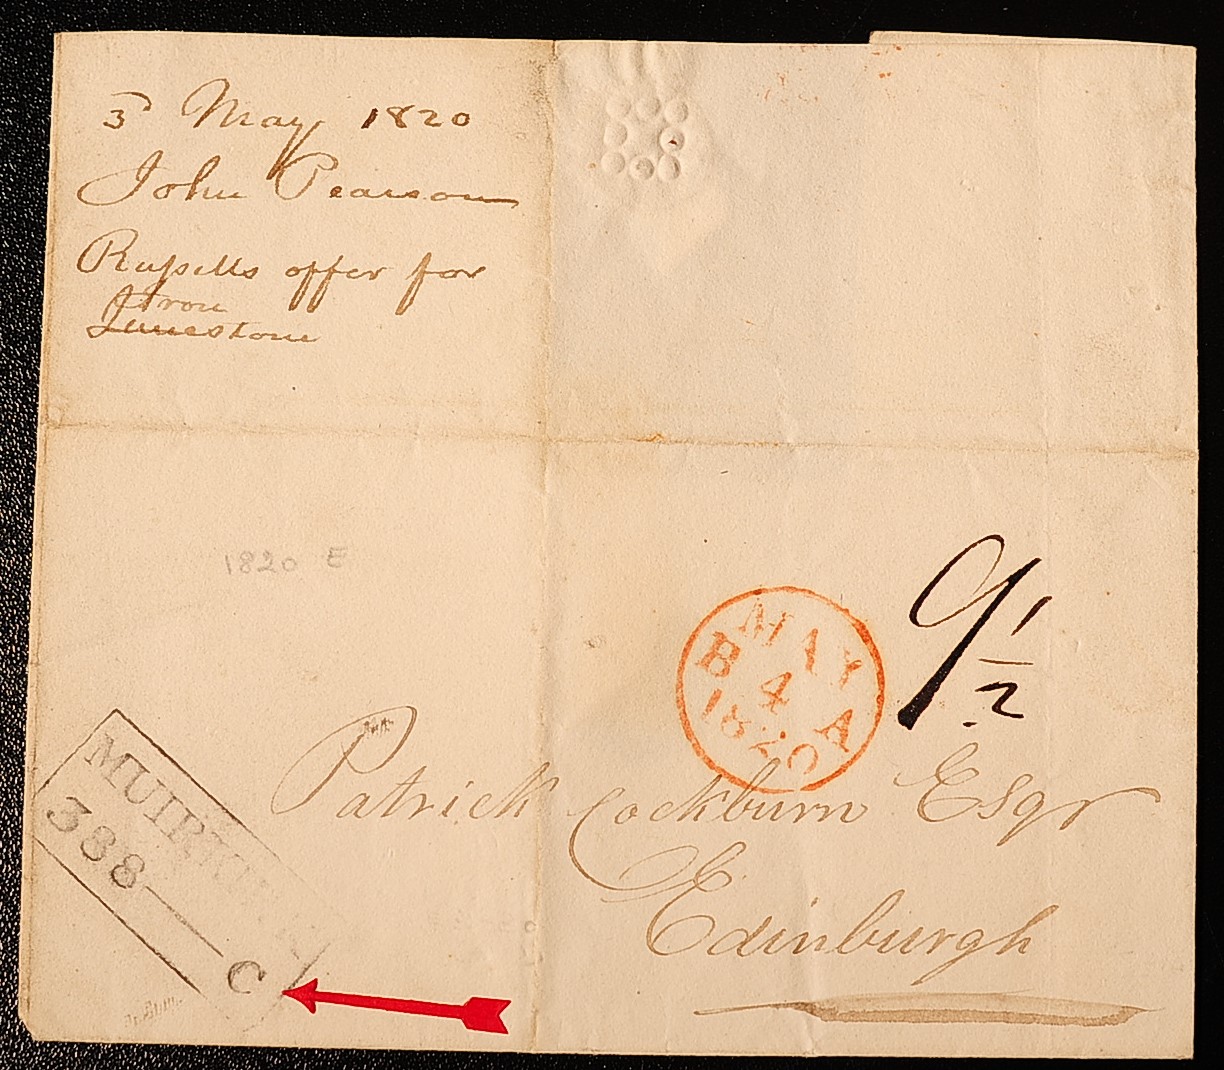 3 May 1820
John Pearson
Rufsells offer for
Iron
Limestone
1820 E
9 1/2
MAY
B 4 A
1820
MUIRK
388
C
Patrick Cockburn Esqr
Edinburgh